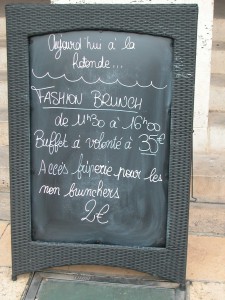 Aujourd'hui à la
Rotonde...
FASHION BRUNCH
de 11h30 à 16h00
Buffet à volonté à 35€
Accès friperie pour les
non brunchers
2€